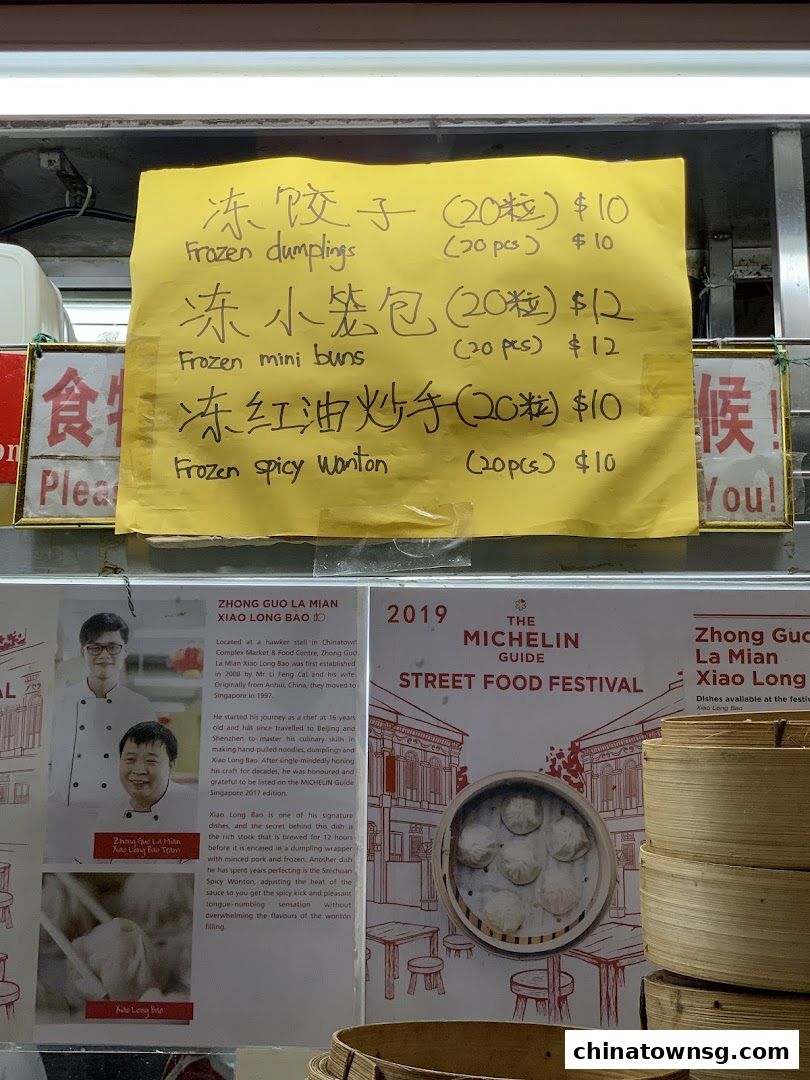 冻饺子 (20粒) $10
Frozen dumplings (20 pcs) $10
冻小笼包 (20粒) $12
Frozen mini buns (20 pcs) $12
冻红油炒手 (20粒) $10
Frozen spicy wonton (20pcs) $10
食
候!
You!
ZHONG GUO LA MIAN
XIAO LONG BAO
Located at a hawker stall in Chinatown
Complex Market & Food Centre, Zhong Guo
La Mian Xiao Long Bao was first established
in 2008 by Mr Li Feng Cai and his wife.
Originally from Anhui, China, they moved to
Singapore in 1997.
He started his journey as a chef at 16 years
old and has since travelled to Beijing and
Shenzhen to master his culinary skills in
making hand-pulled noodles, dumplings and
Xiao Long Bao. After single-mindedly honing
his craft for decades, he was honoured and
grateful to be listed on the MICHELIN Guide
Singapore 2017 edition.
Xiao Long Bao is one of his signature
dishes, and the secret behind this dish is
the rich stock that is brewed for 12 hours
before it is encased in a dumpling wrapper
with minced pork and frozen. Another dish
he has spent years perfecting is the Szechuan
Spicy Wonton, adjusting the heat of the
sauce so you get the spicy kick and pleasant
tongue-numbing sensation without
overwhelming the flavours of the wonton
filling.
Zhong Guo La Mian
Xiao Long Bao Team
Xiao Long Bao
2019
THE
MICHELIN
GUIDE
STREET FOOD FESTIVAL
Zhong Guo
La Mian
Xiao Long
Dishes available at the
Xiao Long Bao
chinatownsg.com